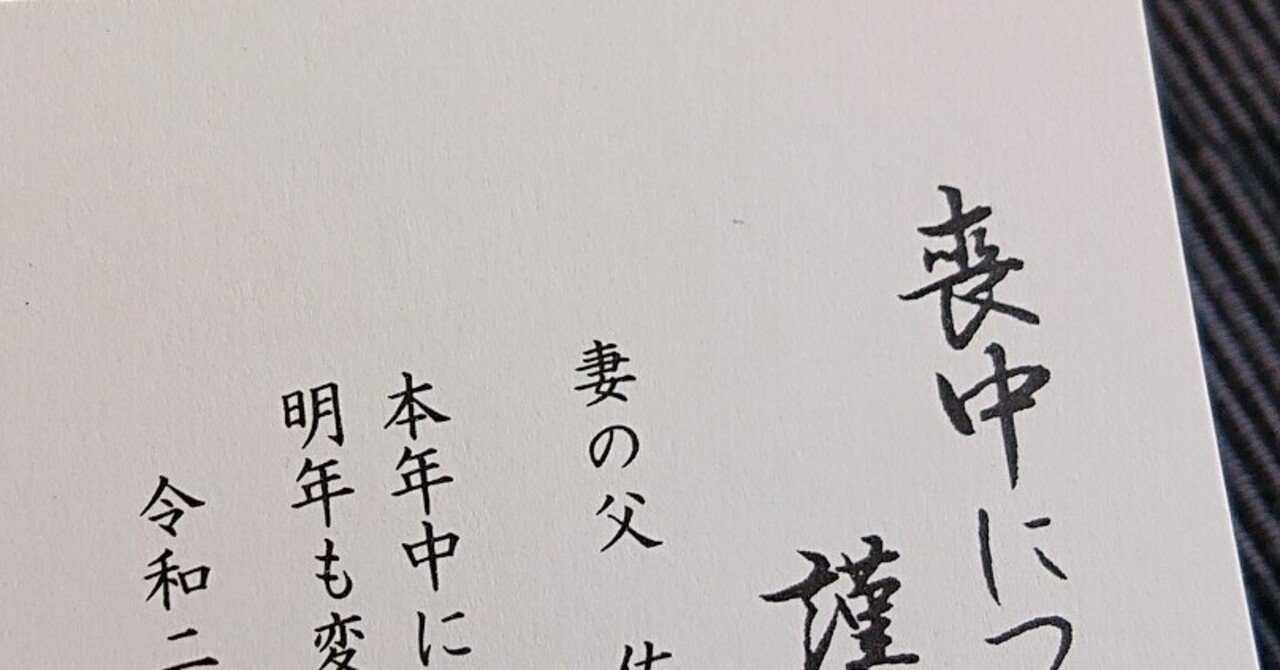 喪中につ
謹
妻の父
本年中に
明年も変
令和二